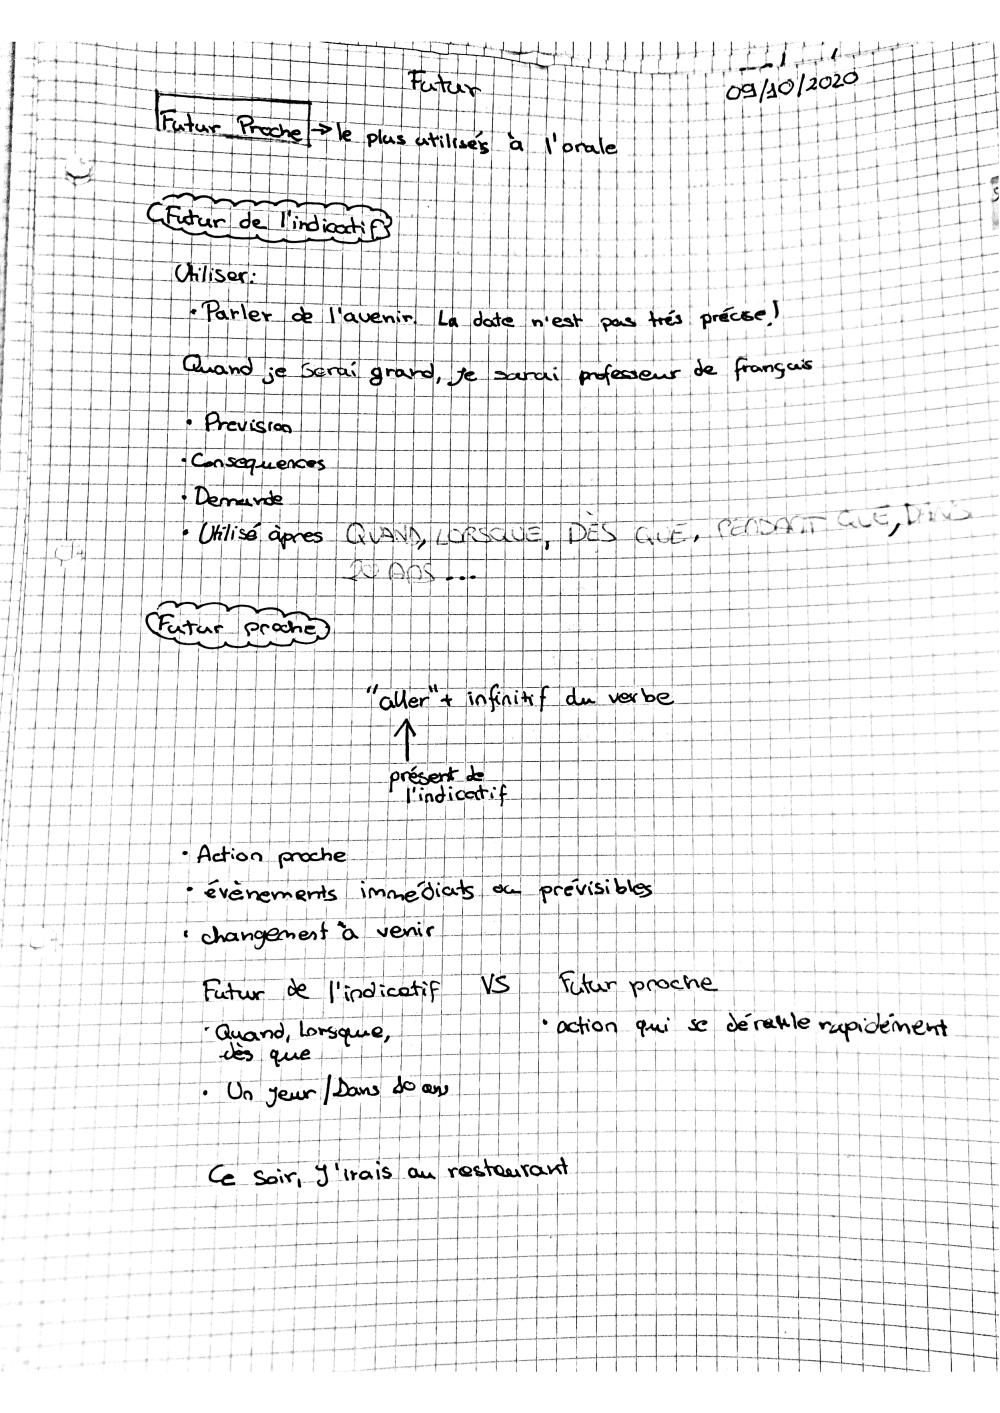 Futur
09/10/2020
Futur Proche → le plus utilisés à l'orale
Futur de l'indicatif
Utiliser:
• Parler de l'avenir. La date n'est pas trés précise!
Quand je serai grand, je sarai professeur de français
• Prevision
• Consequences
• Demande
• Utilisé àpres QUAND, LORSQUE, DÈS QUE, PENDANT QUE, DANS
20 ANS ...
Futur proche
"aller" + infinitif du verbe
↑
présent de
l'indicatif
• Action proche
• évènements immédiats ou prévisibles
• changement à venir
Futur de l'indicatif VS Futur proche
• Quand, Lorsque,
dès que
• action qui se déraule rapidément
• Un jeur / Dans 10 ans
Ce soir, J'irais au restaurant